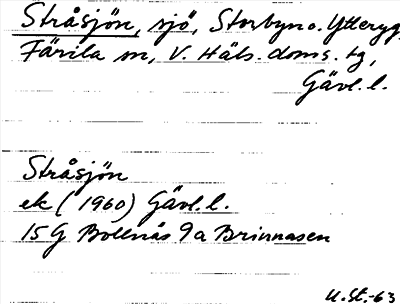 Stråsjön, sjö, Storbyn o. Ytteryg,
Färila sn, V. Häls. doms. tg,
Gävl. l.
Stråsjön
ek (1960) Gävl. l.
15 G Bollnäs 9 a Brinnåsen
U. St. -63